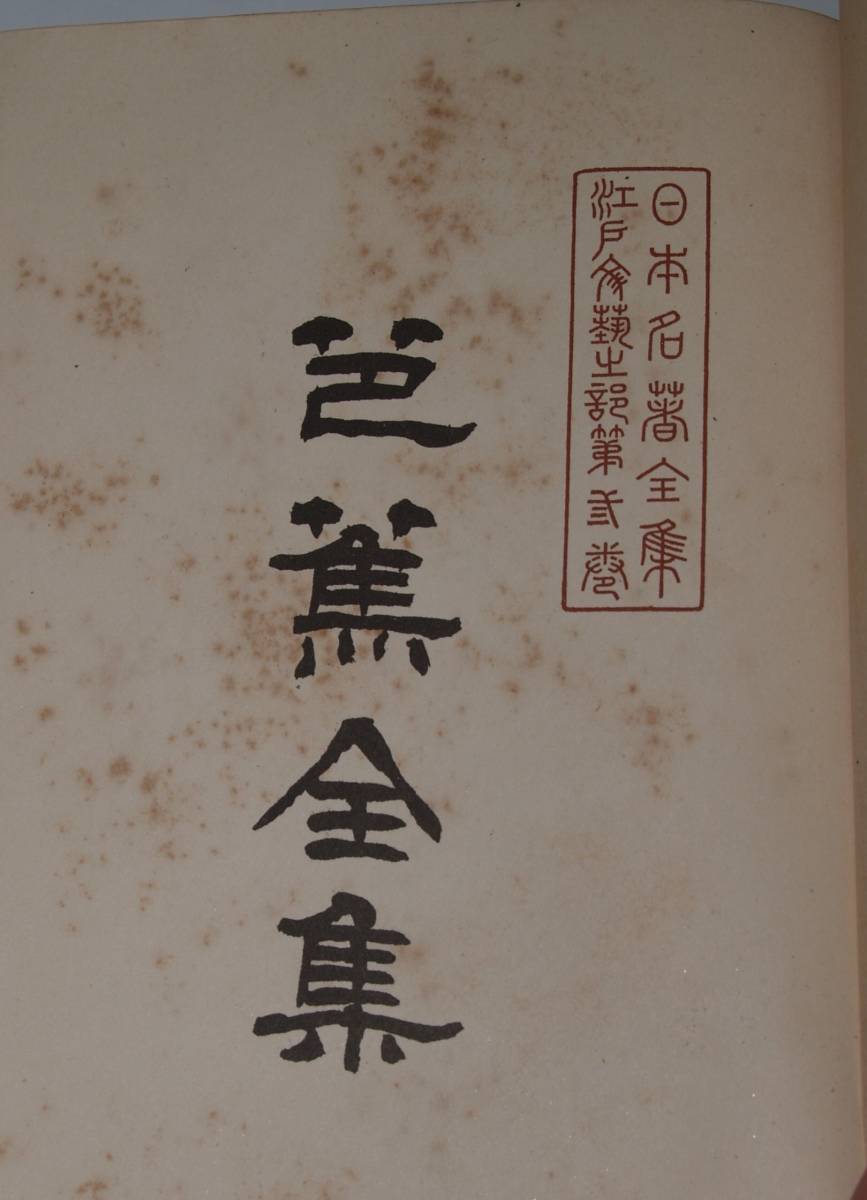 日本名著全集
江戸文藝之部第弐卷
芭蕉全集